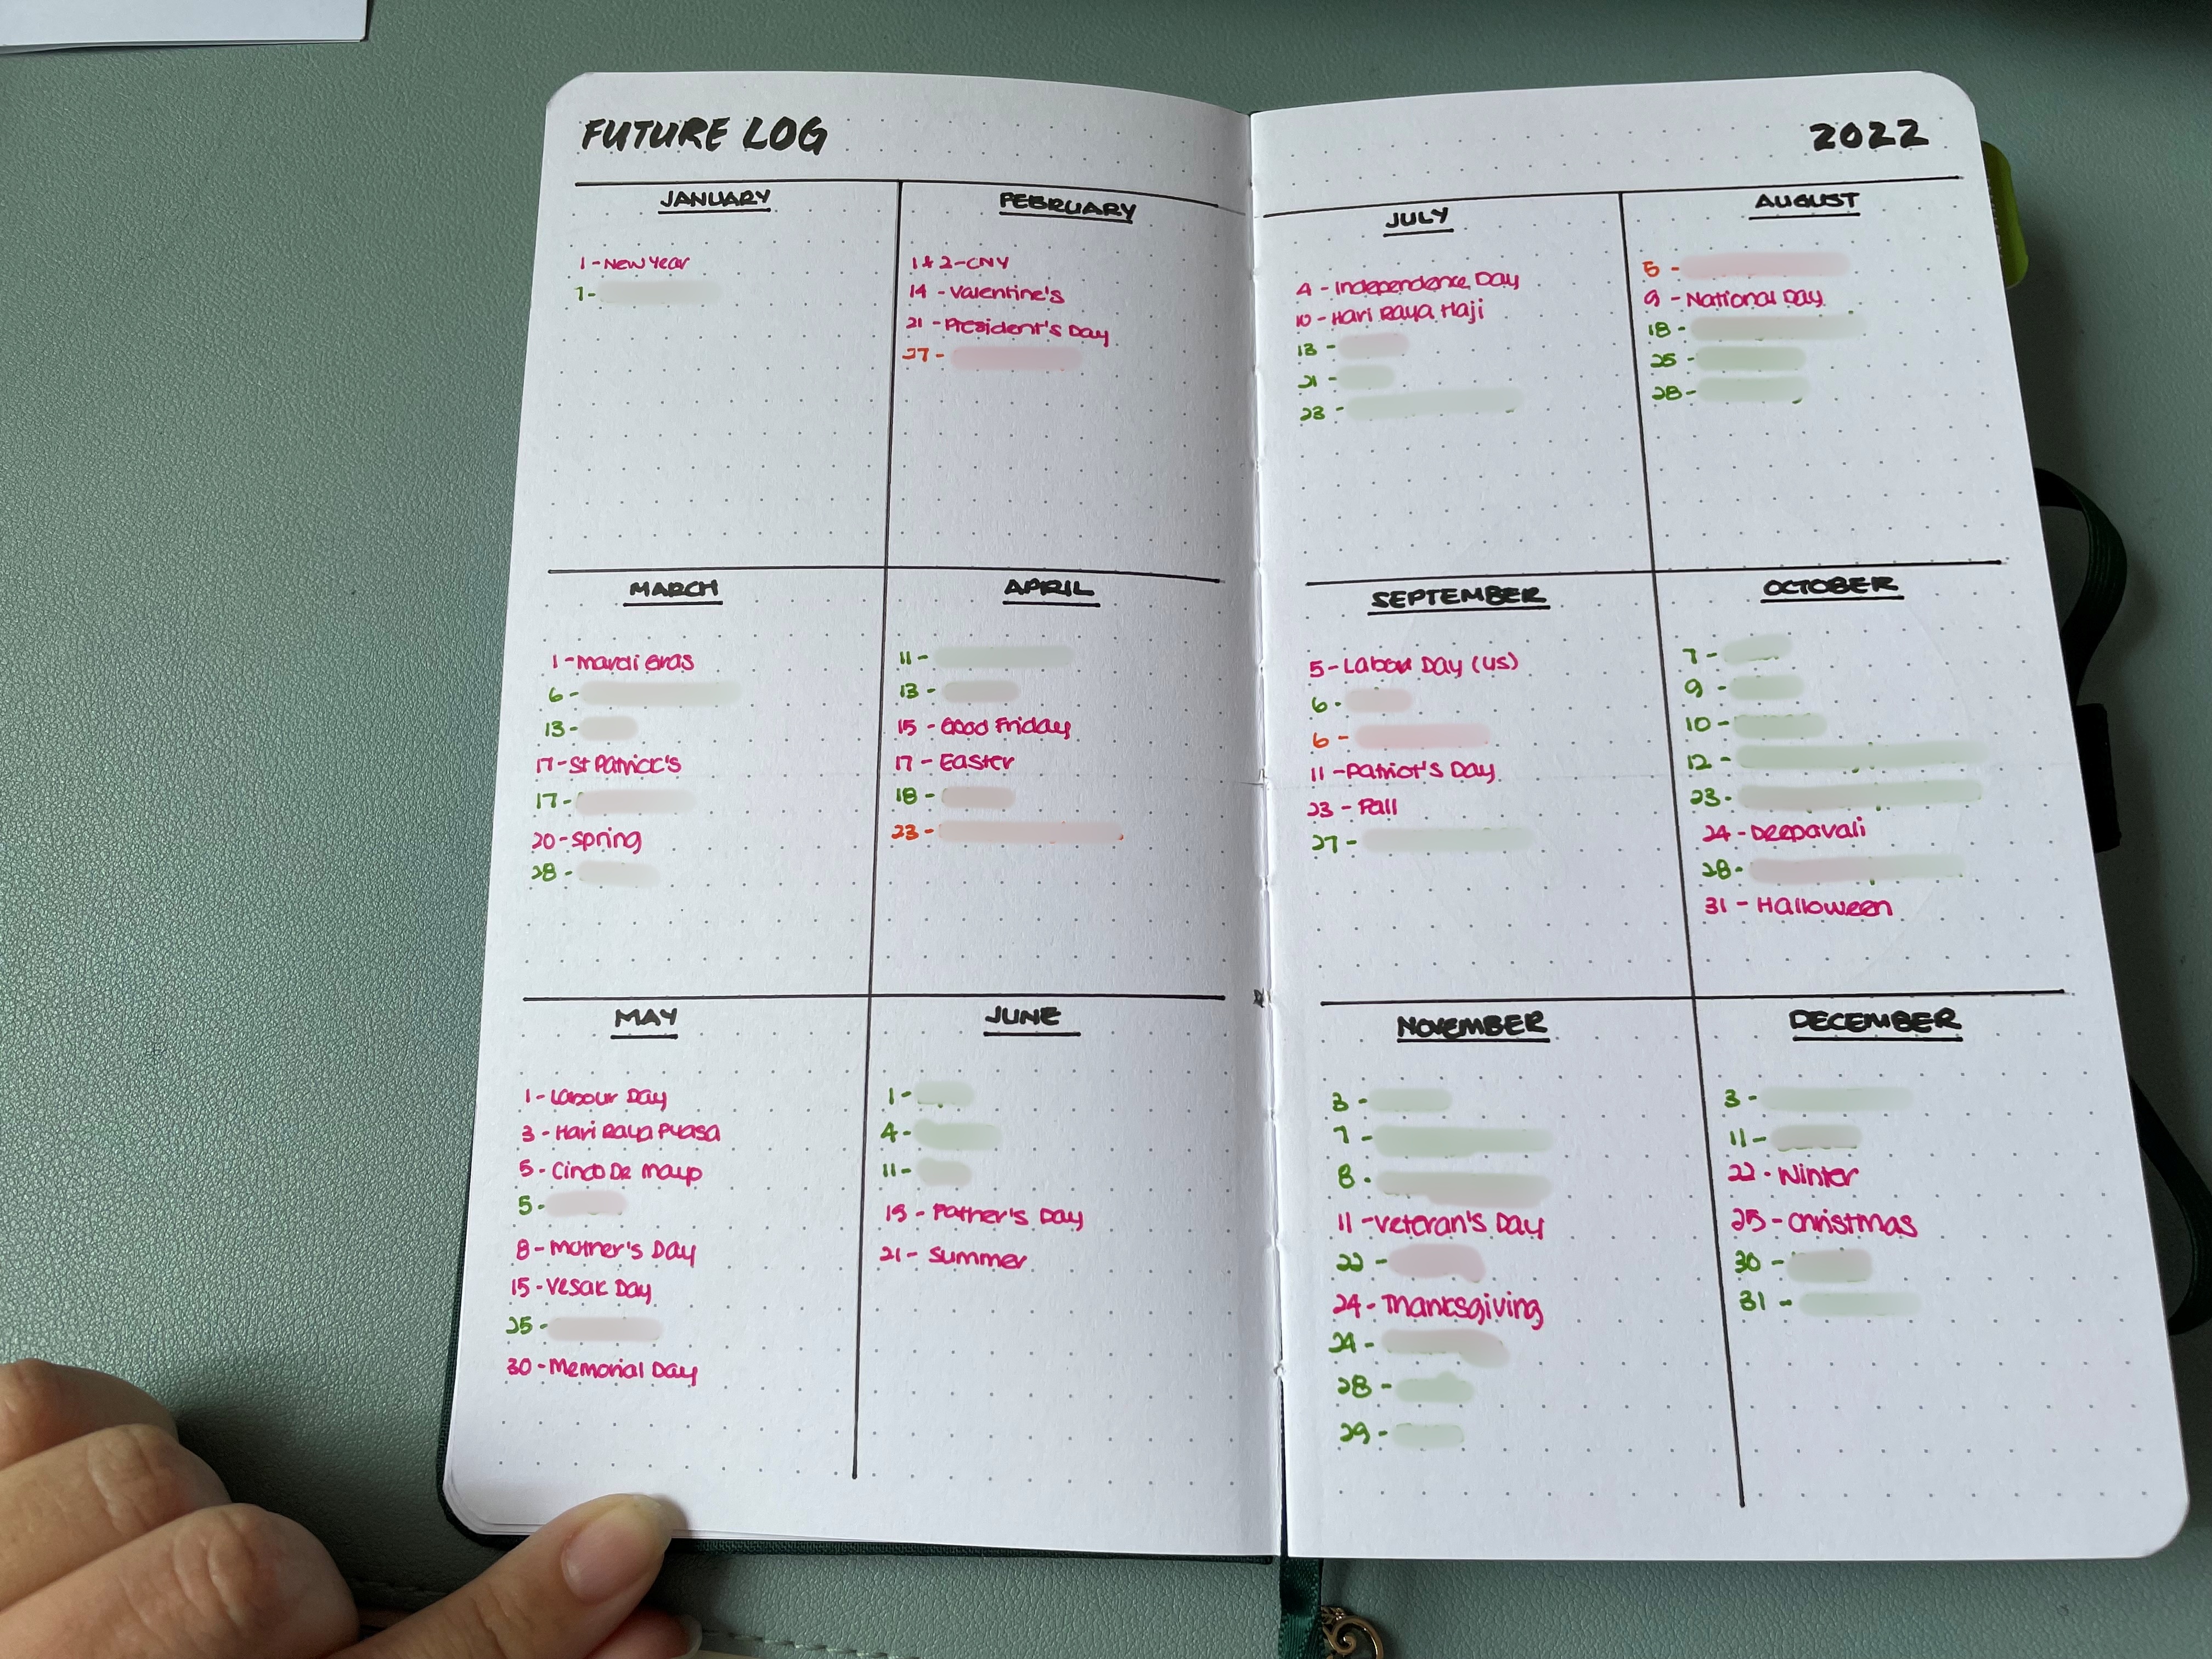 FUTURE LOG
JANUARY
1 - New Year
7 -
FEBRUARY
1 & 2 - CNY
14 - Valentine's
21 - President's Day
27 -
MARCH
1 - Mardi Gras
6 -
13 -
17 - St Patrick's
17 -
20 - Spring
28 -
APRIL
11 -
13 -
15 - Good Friday
17 - Easter
18 -
23 -
MAY
1 - Labour Day
3 - Hari Raya Puasa
5 - Cinco De Mayo
5 -
8 - Mother's Day
15 - Vesak Day
25 -
30 - Memorial Day
JUNE
1 -
4 -
11 -
19 - Father's Day
21 - Summer
2022
JULY
4 - Independence Day
10 - Hari Raya Haji
13 -
21 -
23 -
AUGUST
5 -
9 - National Day
18 -
25 -
28 -
SEPTEMBER
5 - Labour Day (US)
6 -
6 -
11 - Patriot's Day
23 - Fall
27 -
OCTOBER
7 -
9 -
10 -
12 -
23 -
24 - Deepavali
28 -
31 - Halloween
NOVEMBER
3 -
7 -
8 -
11 - Veteran's Day
22 -
24 - Thanksgiving
24 -
28 -
29 -
DECEMBER
3 -
11 -
22 - Winter
25 - Christmas
30 -
31 -